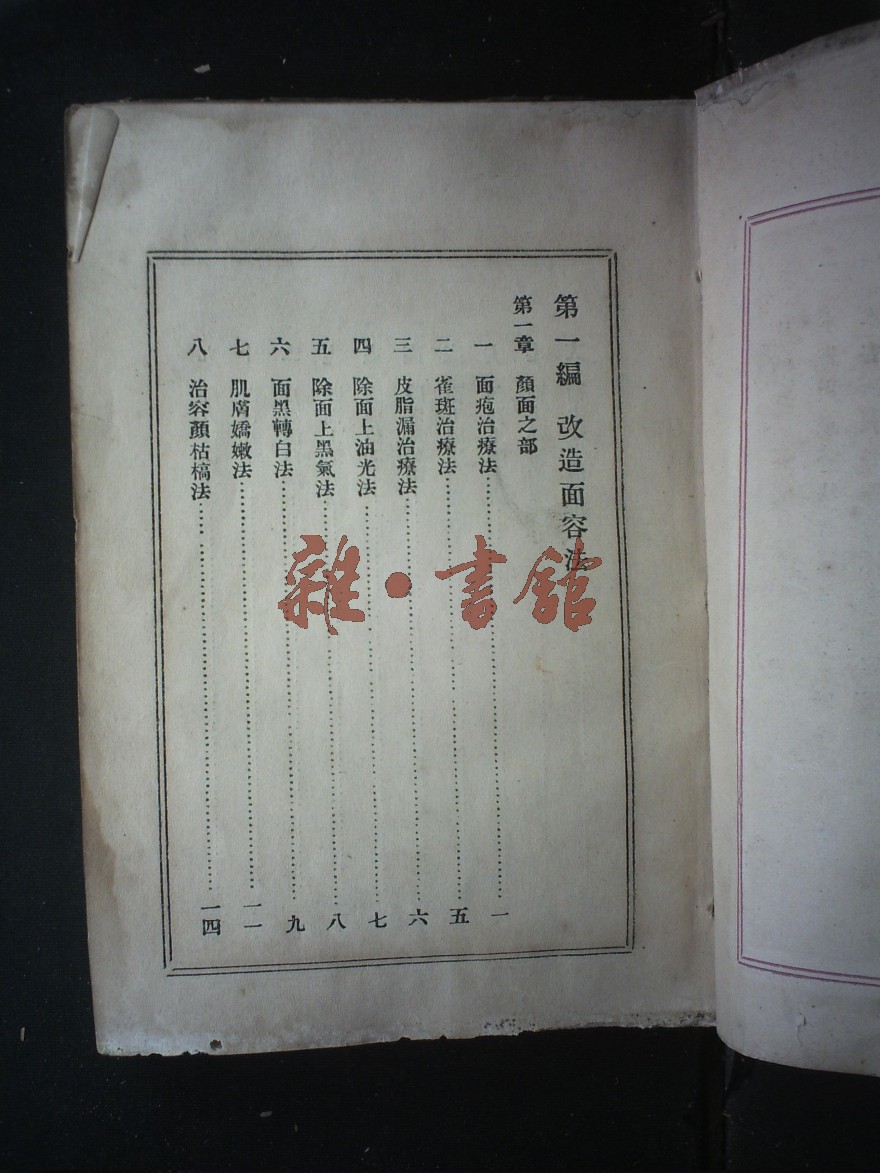 第一編　改造面容法
第一章　顏面之部
一　面疱治療法……一
二　雀斑治療法……五
三　皮脂漏治療法……六
四　除面上油光法……七
五　除面上黑氣法……八
六　面黑轉白法……九
七　肌膚嬌嫩法……一一
八　治容顏枯槁法……一四
雜·書館